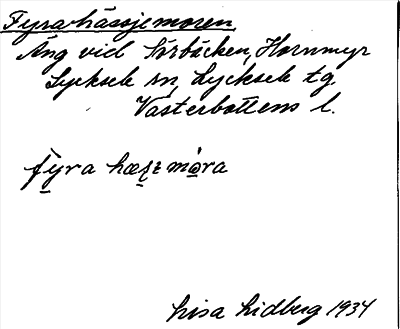 Fyrahässjemoren
Äng vid Sörbäcken, Hornmyr
Lycksele sn, Lycksele tg
Västerbottens l.
fyra hæʂɩ mo̊ra
Lisa Lidberg 1934